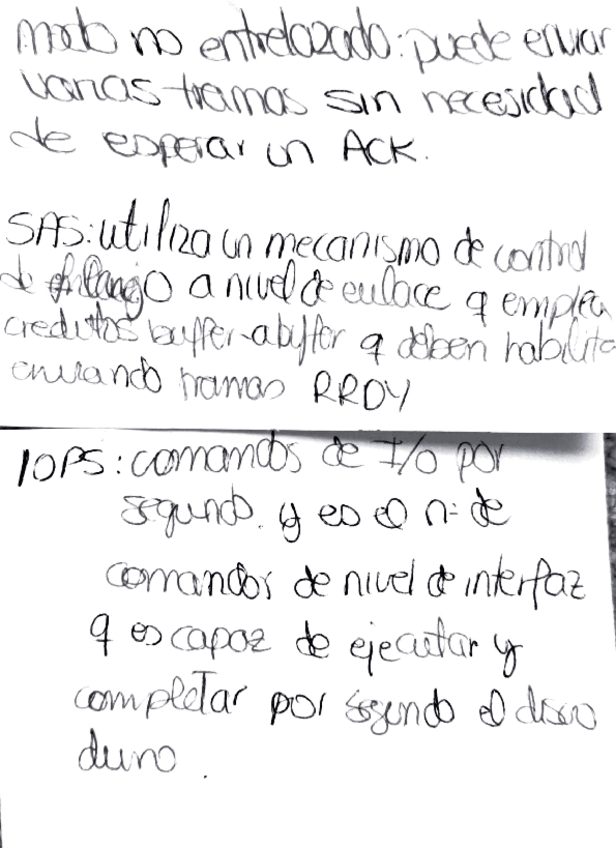 modo no entrelazado: puede enviar
varias tramas sin necesidad
de esperar un ACK.
SAS: utiliza un mecanismo de control
de a nivel de enlace q emplea
creditos buffer-a-buffer q deben habilita
enviando tramas RRDY
IOPS: comandos de I/O por
segundo. y es el nº de
comandos de nivel de interfaz
q es capaz de ejecutar y
completar por segundo el disco
duro.